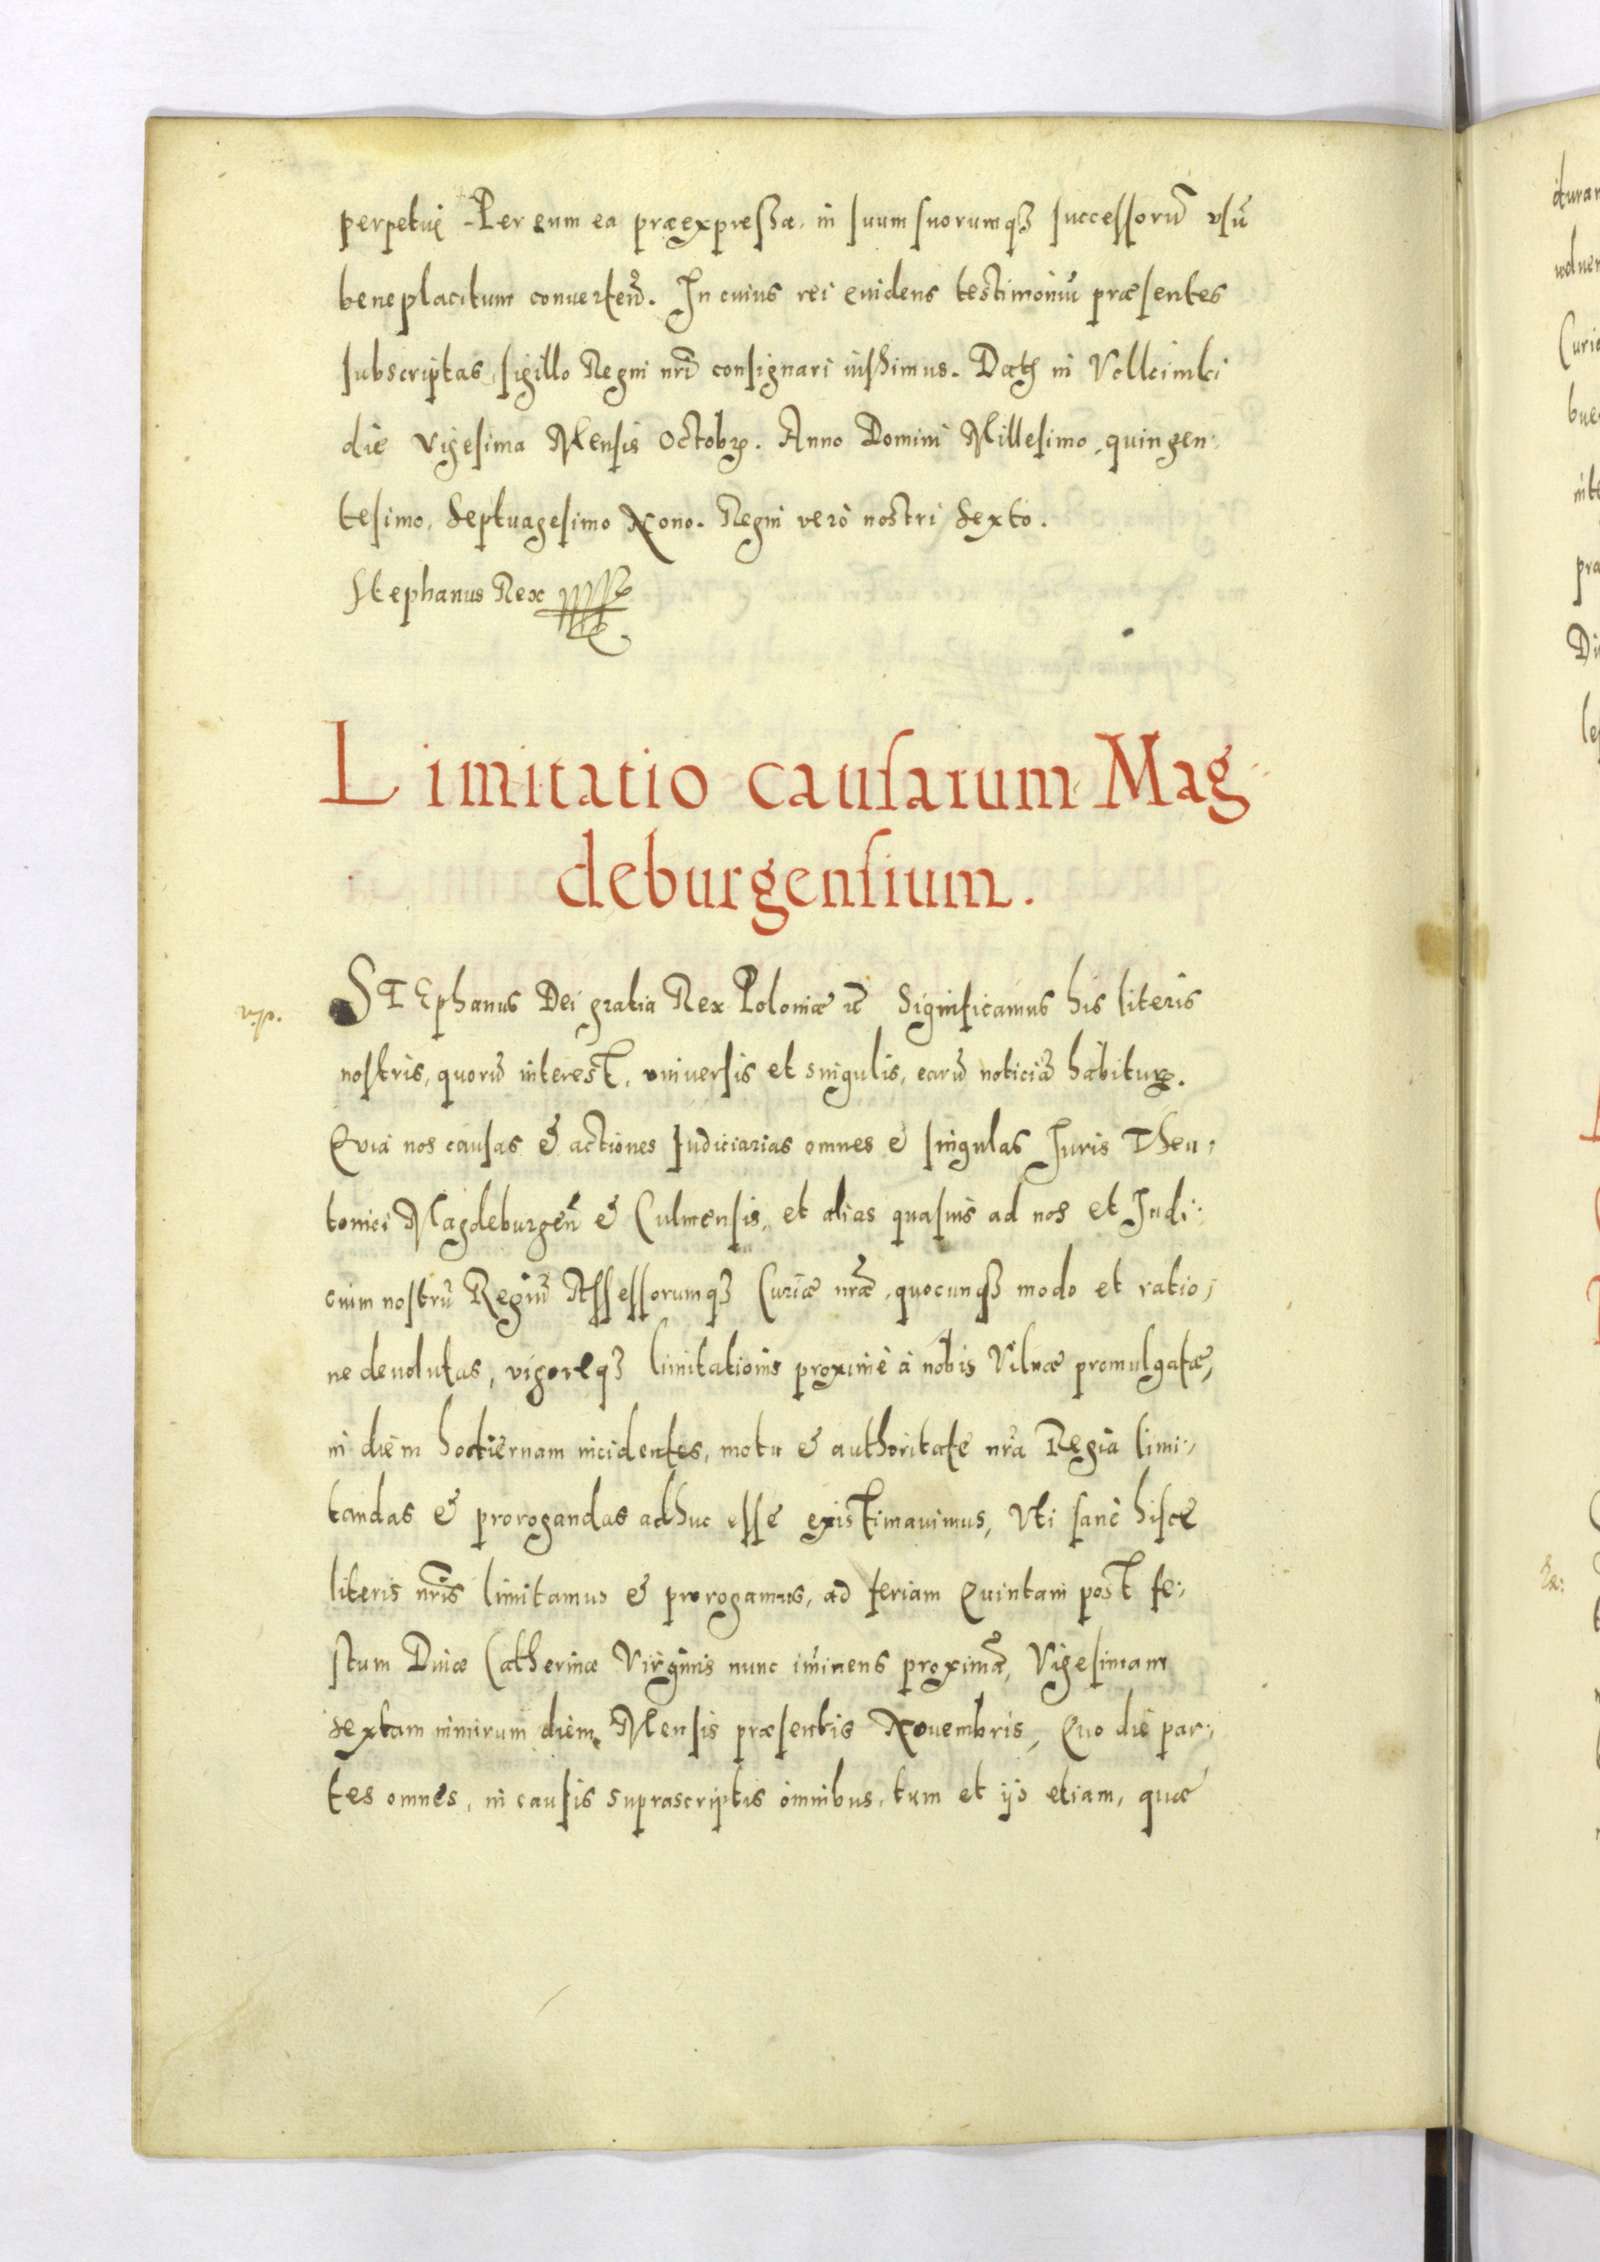 perpetuę. Per eum ea præexpressa, in suum suorumqꝫ successorū vsū
beneplacitum conuertenđ. In cuius rei euidens testimoniū præsentes
subscriptas, sigillo Regni nr̃i consignari iussimus. Dat in
die Vigesima Mensis Octobꝝ. Anno Domini Millesimo, quingen:
tesimo, Septuagesimo Nono. Regni verò nostri Sexto.
Stephanus Rex
Limitatio causarum Mag
deburgensium.
STEphanus Dei gratia Rex Poloniæ ꝛc̃ Significamus his literis
nostris, quorū interest, vniuersis et singulis, earū noticiā habituꝝ.
Quia nos causas & actiones Iudiciarias omnes & singulas Iuris Theu:
tonici Magdeburgeñ & Culmensis, et alias quasuis ad nos et Iudi:
cium nostrū Regiū Assessorumqꝫ Curiæ nr̃æ, quocunqꝫ modo et ratio:
ne deuolutas, vigoreqꝫ limitationis proximè à nobis Vilnæ promulgatæ,
in diem hodiernam incidentes, motu & authoritate nr̃a Regia limi:
tandas & prorogandas adhuc esse existimauimus, Vti sanè hisce
literis nr̃is limitamus & prorogamus, ad feriam Quintam post fe:
stum Diuæ Catherinæ Virginis nunc im̄inens proximā, Vigesimam
sextam nimirum diem, Mensis præsentis Nouembris, Quo die par:
tes omnes, in causis suprascriptis omnibus, tum et ijs etiam, quæ